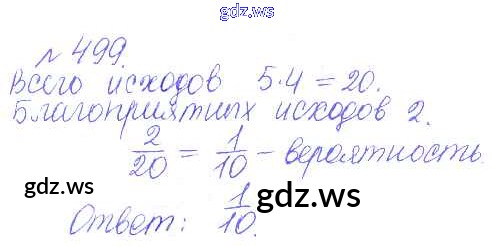 gdz.ws
№ 499.
Всего исходов 5·4 = 20.
Благоприятных исходов 2.
2/20 = 1/10 – вероятность.
gdz.ws
gdz.ws
Ответ: 1/10.
gdz.ws